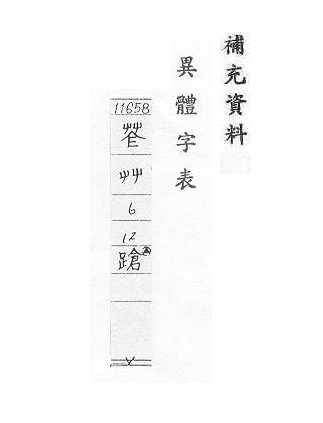 補充資料
異體字表
11658
艸
6
12
蹌